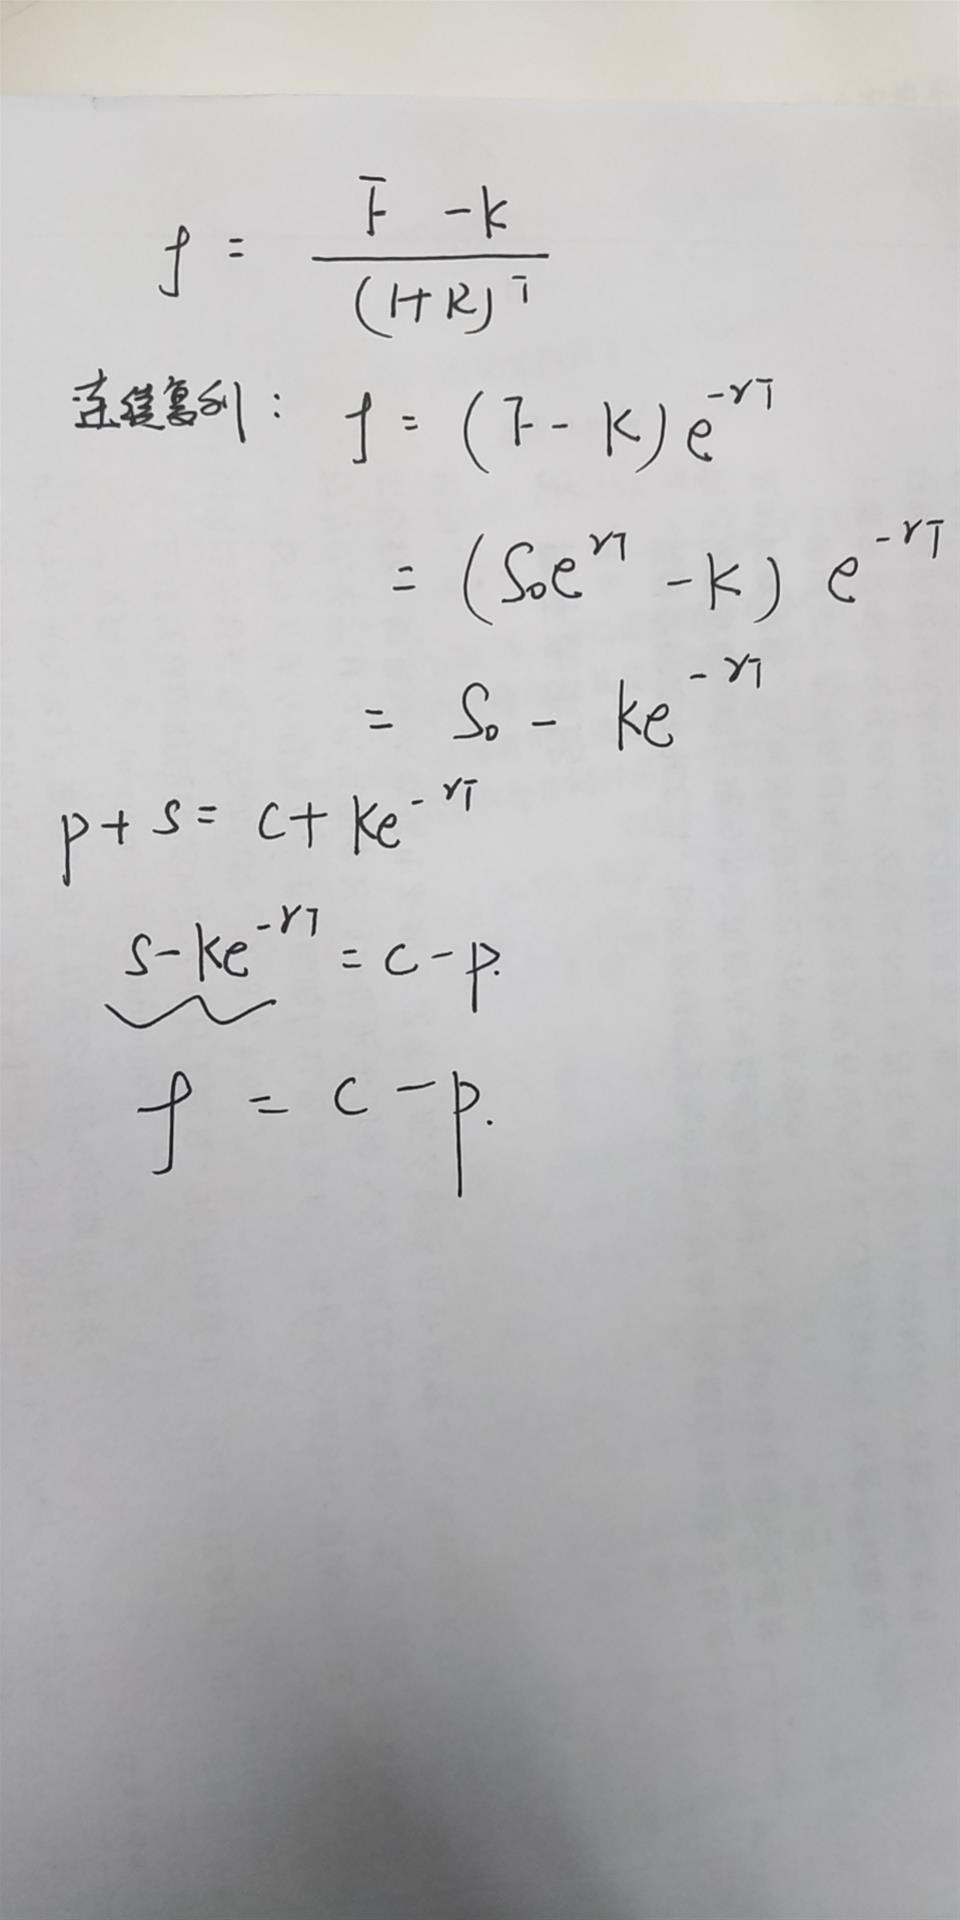 f = \frac{F - K}{(1+R)^T}
连续复利: f = (F - K) e^{-rT}
= (S_0 e^{rT} - K) e^{-rT}
= S_0 - Ke^{-rT}
p + s = c + Ke^{-rT}
s - Ke^{-rT} = c - p.
f = c - p.